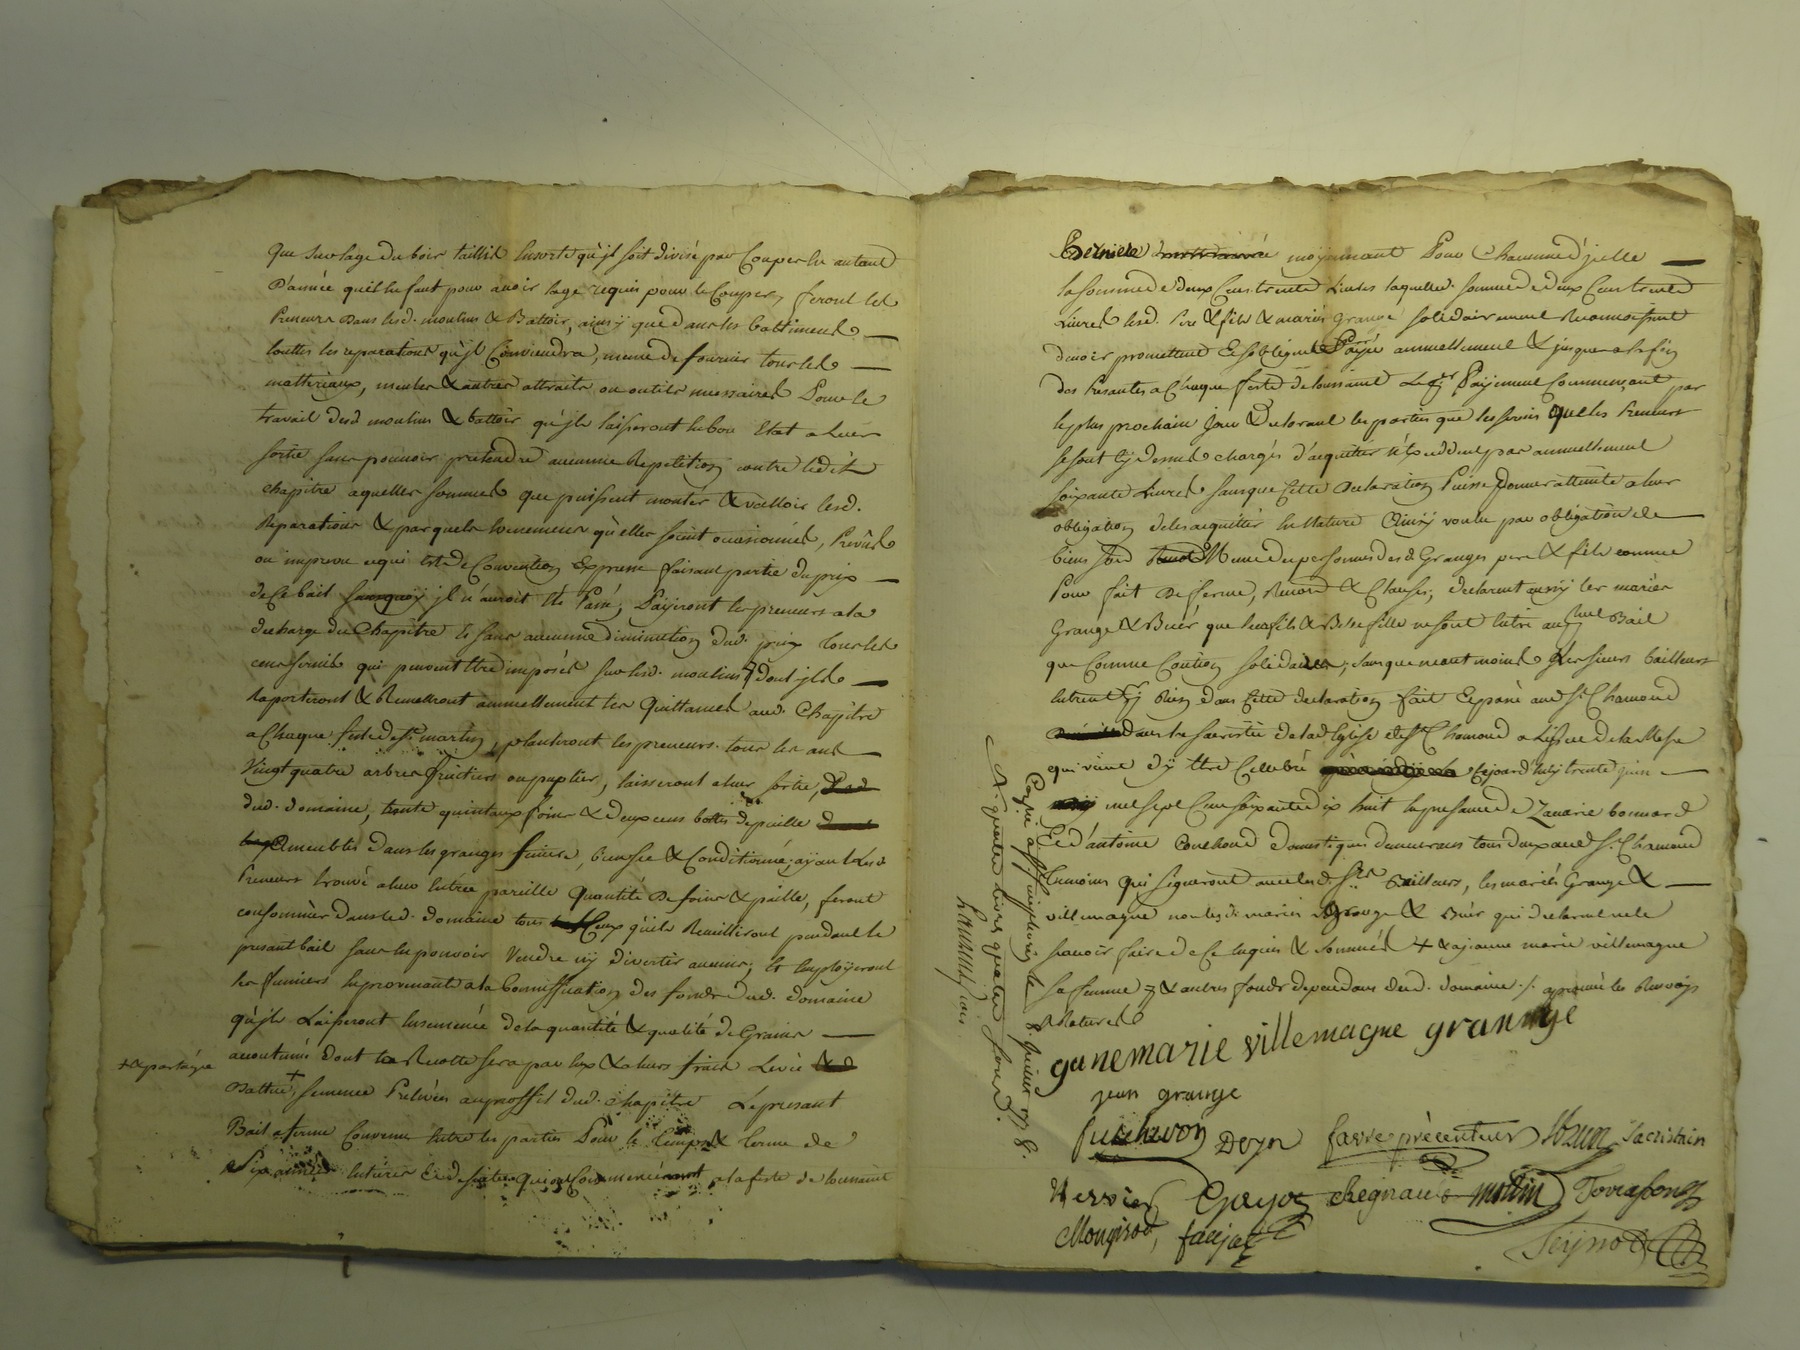 que sur lage du bois taillis Ensorte qu'jl soit divisé par Coupes En autant
D'année quil En faut pour avoir lage requis pour le Couper, feront les
Preneurs dans lesd. moulins & Battoir, ainsy que dans les battiments
touttes les reparations qu'jl Conviendra, meme de fournir tous les
matteriaux, meules & autres attraits ou outils necessaires Pour le
travail desd moulins & battoir qu'jls laisseront En bon Etat a leur
sortie sans pouvoir pretendre aucunne Repetition contre ledit
chapitre a quelles sommes que puissent monter & valloir lesd.
Reparations & par quels Evenements qu'elles soient occasionnées, Prevûs
ou imprevu ce qui Est de Convention Expresse faisant partie du prix
de Ce bail sans quoy jl n'auroit Eté Passé, Payeront les preneurs a la
decharge du Chapitre Et sans aucunne diminution dud. prix tous les
cens servis qui peuvent Etre imposés sur lesd. moulins dont jls
Raporteront & Remettront annuellement les Quittances aud. Chapitre
a Chaque feste de St. martin, planteront les preneurs tous les ans
Vingt quatre arbres fruitiers ou puplier, laisseront a leur sortie,
dud. domaine, trente quintaux foins & deux cens bottes de paille
meubles dans les granges feniere, bien sec & Conditionné, ayant Lesd
Preneurs trouvé a leur Entrée pareille Quantité de foins & paille, feront
consommer dans led. domaine tous Ceux qu'ils Recuilliront pendant le
present bail sans En pouvoir Vendre ny divertir aucuns, Et Employeront
les fumiers En provenants a la bonnification des fonds dud. domaine
qu'jls Laisseront Ensemencé de la quantité & qualité de Grains
accoutumé dont la Recolte sera par Eux & a leurs frais Levée
+ & partagée
Battue + semence Prelevée au proffit dud. chapitre Le present
Bail a ferme Convenu Entre les parties Pour le temps & terme de
Six années Entieres Et de suitte qui ont Commencé a la feste de toussaint
Derniere moyennant Pour Chacunne d'jcelle
la somme de deux Cens trente Livres laquelle somme de deux Cens trente
Livres lesd. Pere & fils & mariés Grange solidairement Reconnoissent
devoir promettent Et s'obligent Payer annuellement & jusques a la fin
des Presentes a Chaque feste de toussaint Le Payement Commençant par
le plus prochain jour Declarant les parties que les servis que les Preneurs
se sont cy dessus chargés d'acquitter n'Excedent pas annuellement
soixante Livres sans que Cette declaration Puisse donner atteinte a leur
obligation de les acquitter En Nature Ainsy voulu par obligation de
biens Et meme des personnes desd Granges pere & fils comme
Pour fait de ferme, Renond & Clauses, declarent aussy les mariés
Grange & Buér que leur fils & Belle fille ne sont Entré au present Bail
que Comme Caution solidaires, sans que neantmoins les sieurs bailleurs
Entrent En Rien dans Cette declaration fait Et passé aud St. Chamond
dans la sacristie de lad Eglise de St. Chamond a L'issue de la Messe
qui vient d'y Etre Cellebré Ce jourd'huy trente juin
mil sept Cens soixante dix huit En presence de Zacarie bonnard
Et d'antoine Couchoud domestiques demeurans tous deux aud St. Chamond
temoins qui signeront avec lesd. Srs. Bailleurs, les mariés Grange &
villemagne non lesd. mariés Grange & Buér qui declarent ne le
sçavoir faire de Ce Enquis & sommés + & a jeanne marie villemagne
sa femme & autres fonds dependans dud. domaine ./. aprouvé les Renvoys
& Ratures
Controllé a St. Chamond le 8 juillet 1778
R. quatre livres quatre sous
ganemarie villemagne grange
jean grange
Doyen favre précenteur Sacristain
Versier Gayot Regnaud molin Terrasson
Mongirod, faujat
Teynod